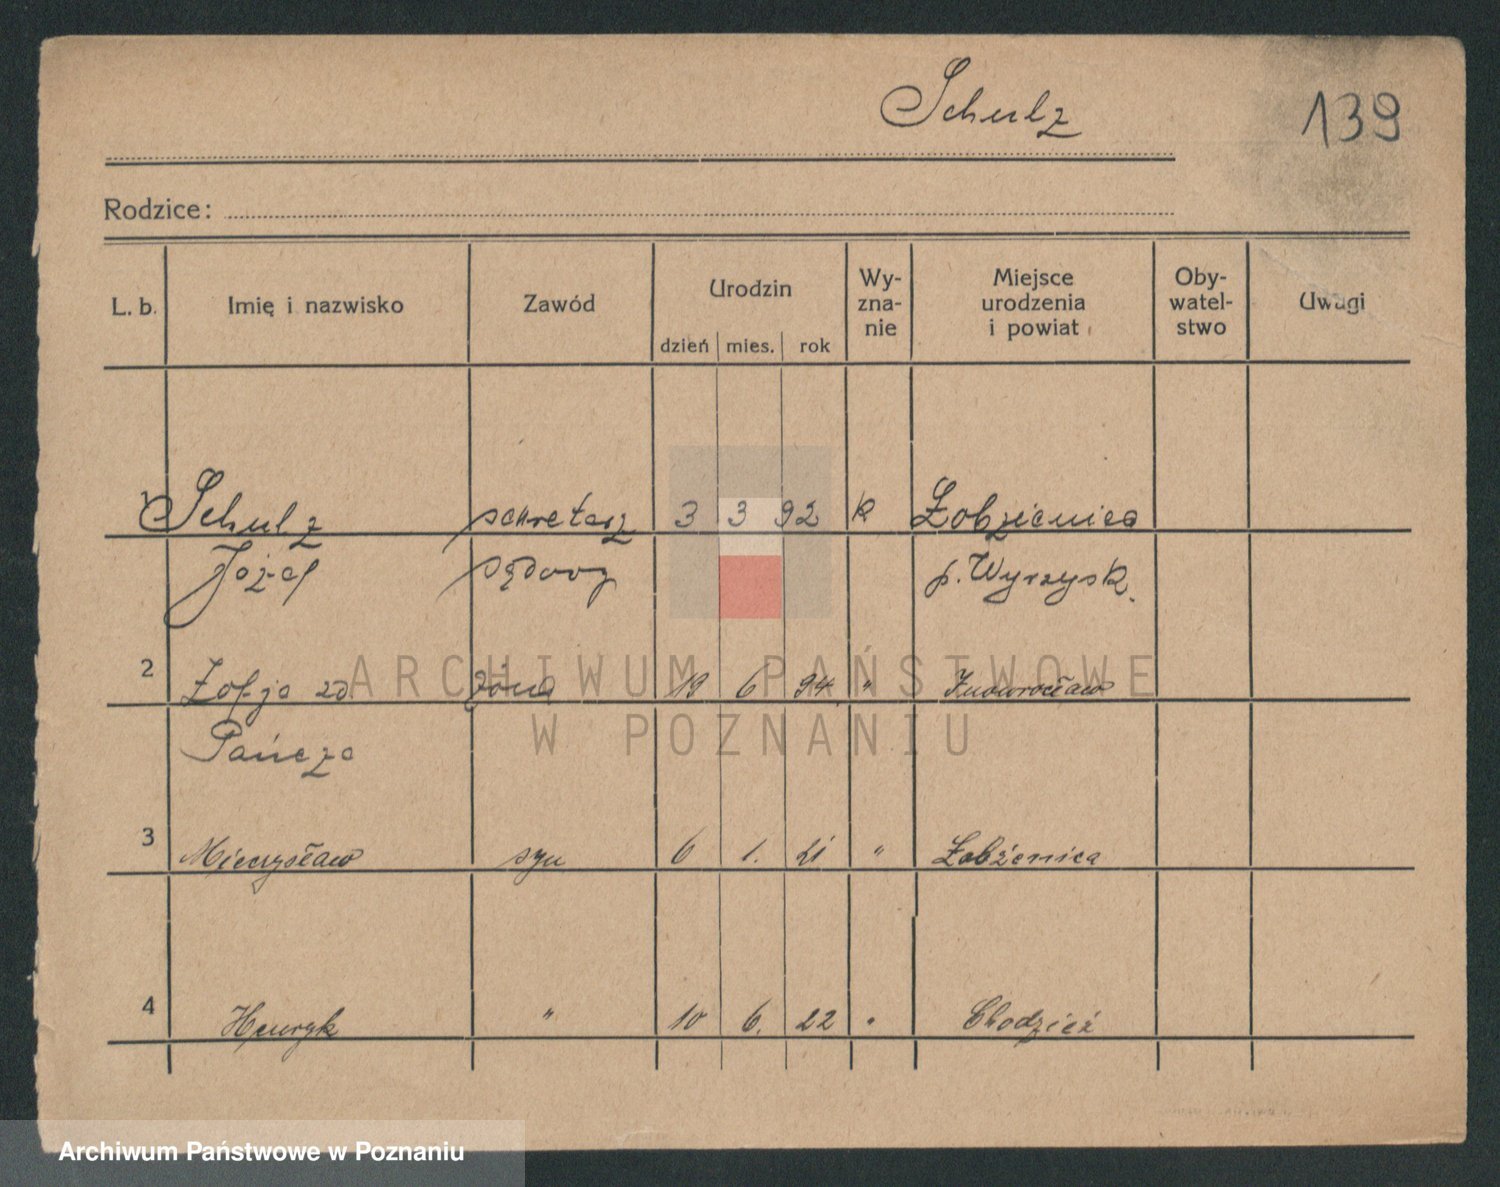 Schulz
139
Rodzice:
L. b.
Imię i nazwisko
Zawód
Urodzin
dzień
mies.
rok
Wy-
zna-
nie
Miejsce
urodzenia
i powiat
Oby-
watel-
stwo
Uwagi
1 Schulz sekretarz 3 3 92 k Łobżenica
Józef sądowy p. Wyrzysk.
2 Zofja zd żona 19 6 94 " Inowrocław
Pańcza
3 Mieczysław syn 6 1. 21 " Łobżenica
4 Henryk " 10 6. 22 " Chodzież
ARCHIWUM PAŃSTWOWE
W POZNANIU
Archiwum Państwowe w Poznaniu